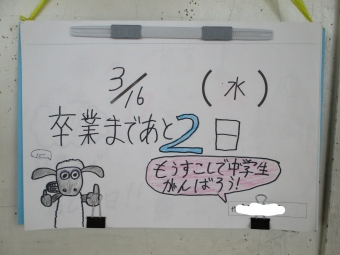 3/16 (水)
卒業まであと2日
もうすこしで中学生
がんばろう!